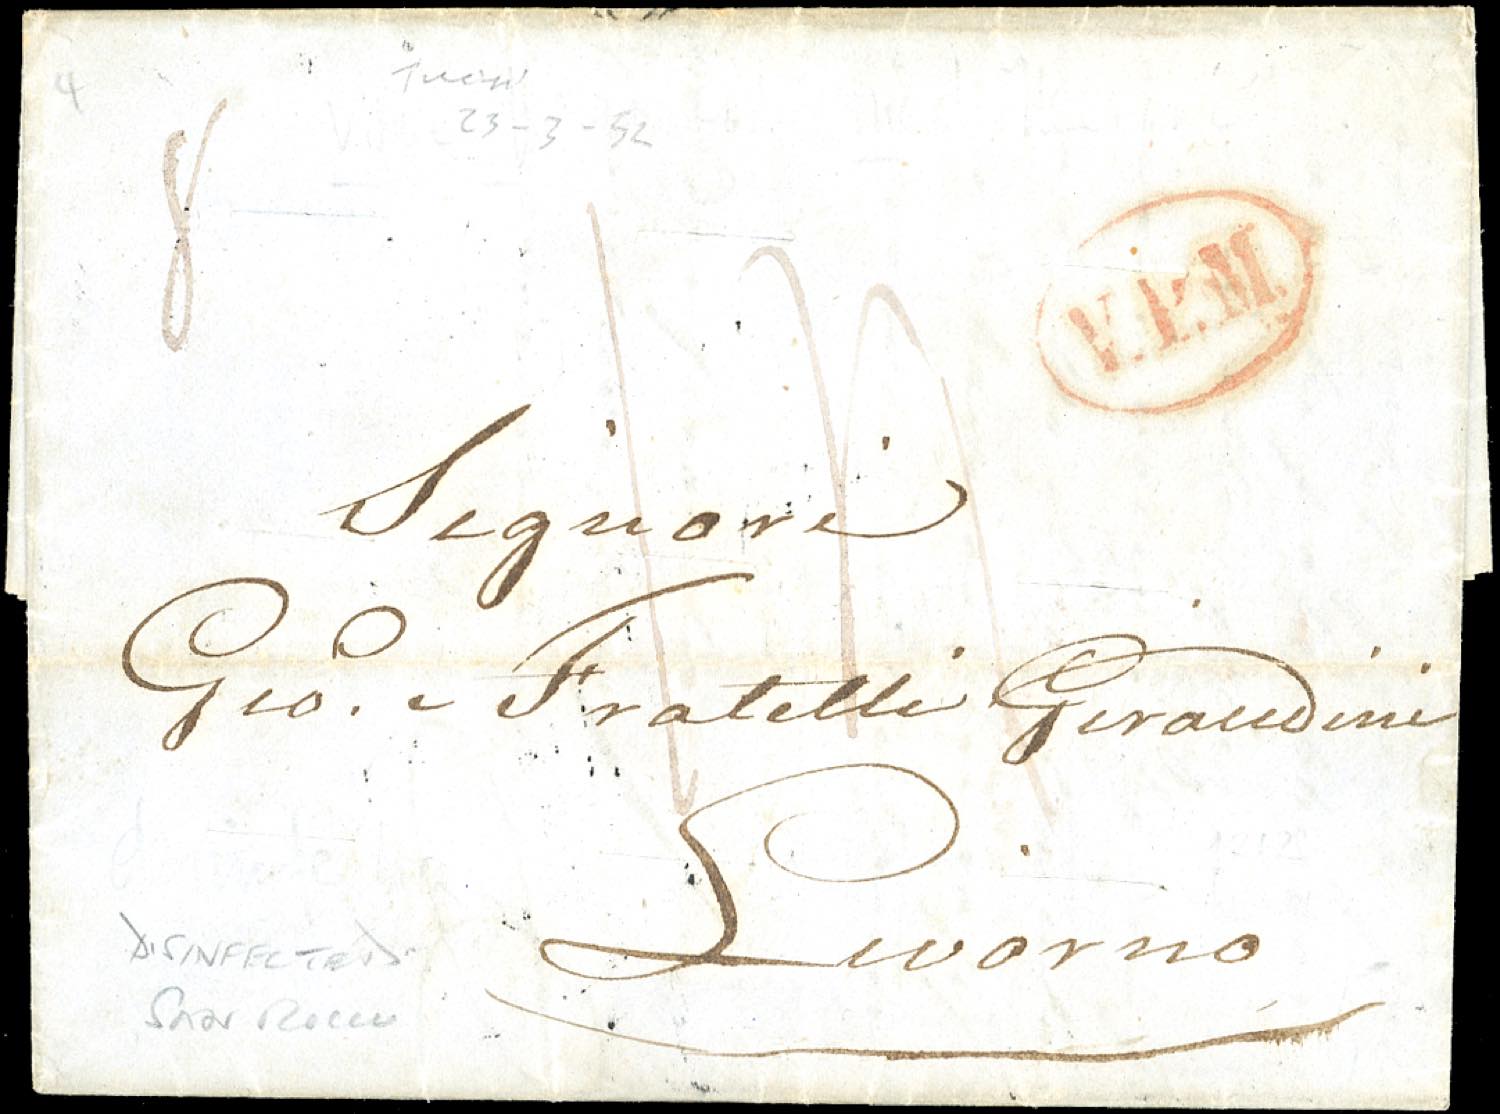 4
Tunisi
23-3-52
8
V.P.M.
Signori
Gio. e Fratelli Giraudini
Livorno
DISINFECTED
San Rocco